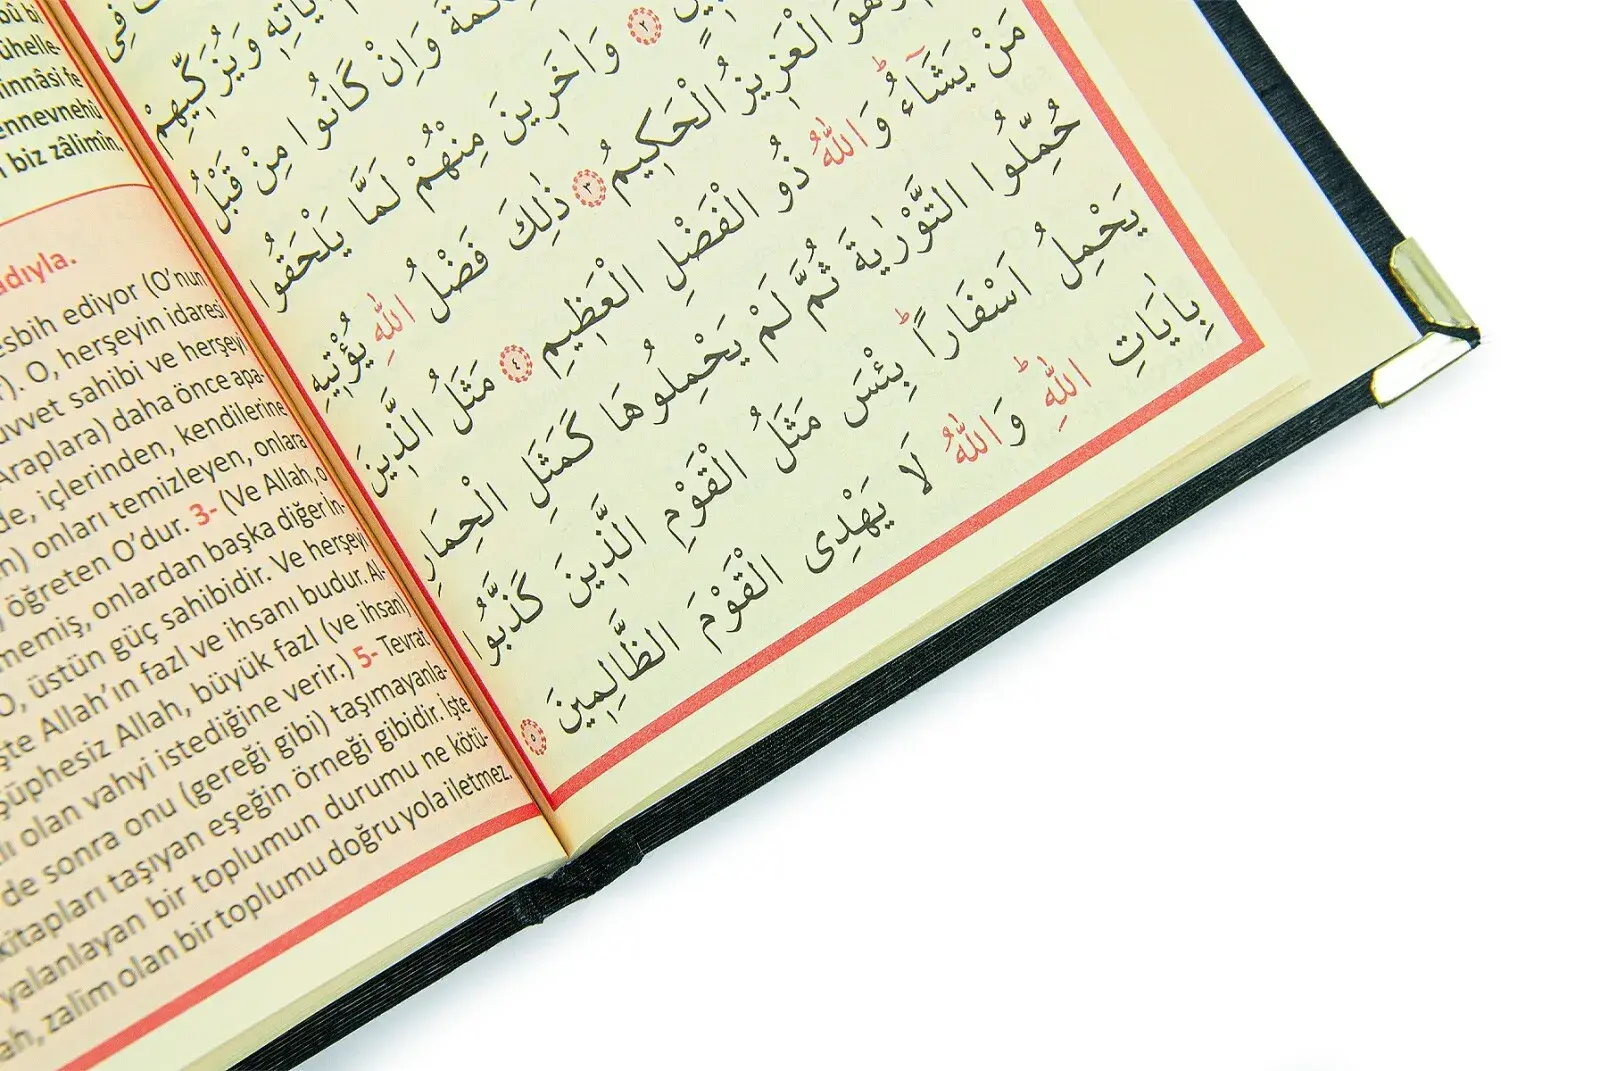 ûhelle-
innâsi fe
ennevnehû
biz zâlimîn.
adıyla.
esbih ediyor (O’nun
O, herşeyin idaresi
uvvet sahibi ve herşeyi
Araplara) daha önce apa-
de, içlerinden, kendilerine
onları temizleyen, onlara
öğreten O’dur. 3- (Ve Allah, o
memiş, onlardan başka diğer in-
O, üstün güç sahibidir. Ve herşeyi
şte Allah’ın fazl ve ihsanı budur. Al-
şüphesiz Allah, büyük fazl (ve ihsan)
olan vahyi istediğine verir.) 5- Tevrat
de sonra onu (gereği gibi) taşımayanla-
kitapları taşıyan eşeğin örneği gibidir. İşte
yalanlayan bir toplumun durumu ne kötü-
ah, zalim olan bir toplumu doğru yola iletmez.
فِى
اٰيَاتِهٖ وَيُزَكّٖيهِمْ
وَاِنْ كَانُوا مِنْ قَبْلُ
٢ وَاٰخَرٖينَ مِنْهُمْ لَمَّا يَلْحَقُوا
هُوَ الْعَزٖيزُ الْحَكٖيمُ ٣ ذٰلِكَ فَضْلُ اللّٰهِ يُؤْتٖيهِ
مَنْ يَشَٓاءُ وَاللّٰهُ ذُو الْفَضْلِ الْعَظٖيمِ ٤ مَثَلُ الَّذٖينَ
حُمِّلُوا التَّوْرٰيةَ ثُمَّ لَمْ يَحْمِلُوهَا كَمَثَلِ الْحِمَارِ
يَحْمِلُ اَسْفَارًا بِئْسَ مَثَلُ الْقَوْمِ الَّذٖينَ كَذَّبُوا
بِاٰيَاتِ اللّٰهِ وَاللّٰهُ لَا يَهْدِى الْقَوْمَ الظَّالِمٖينَ ٥